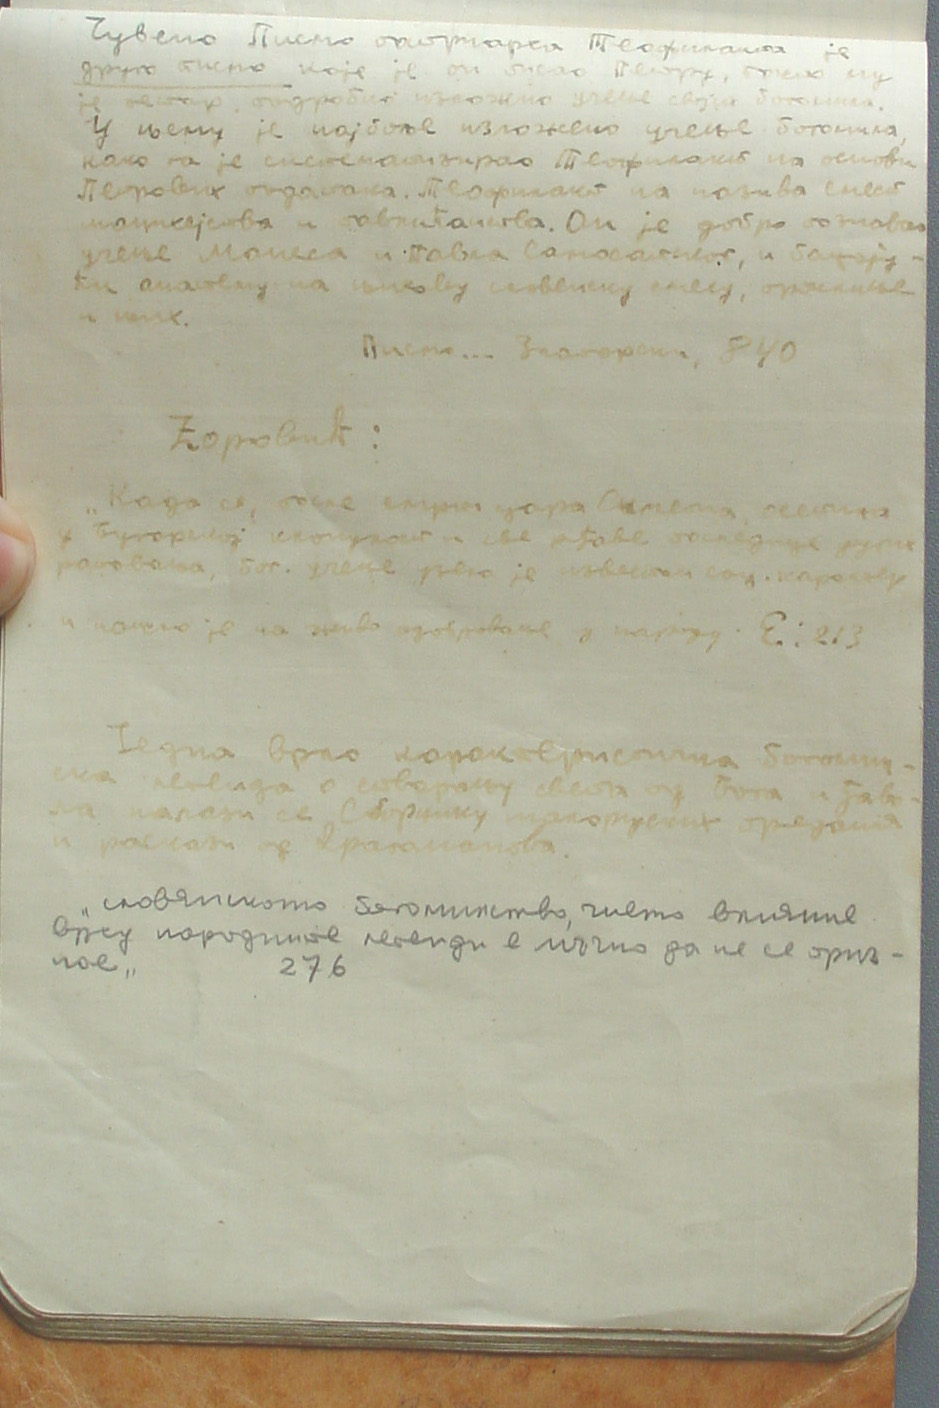 Чувено Писмо патријарха Теофилакта је
друго писмо које је он писао Петру, пошто му
је Петар подробно изложио учење својих богомила.
У њему је најбоље изложено учење богомила,
како га је систематизирао Теофилакт на основи
Петрових података. Теофилакт га назива смеса
манихејства и павликанства. Он је добро познавао
учење Манеса и Павла Самосатског, и бацају-
ћи анатему на њихову словенску смесу, проклиње
и њих.
Писмо... Златарски, 840
Ћоровић:
„Када се, после смрти цара Симеона, осетила
у Бугарској исцрпеност и све рђаве последице дугих
ратовања, бог. учење узело је известан соц. карактер
и наишло је на живо одобравање у народу. Ћ: 213
Једна врло карактеристична богомил-
ска легенда о стварању света од Бога и ђаво-
ла налази се „Сборнику малоруских предања
и раскази од Драгоманова.
„словянското богомилство, чието влияние
върху народните легенди е мъчно да не се приз-
нае„ 276